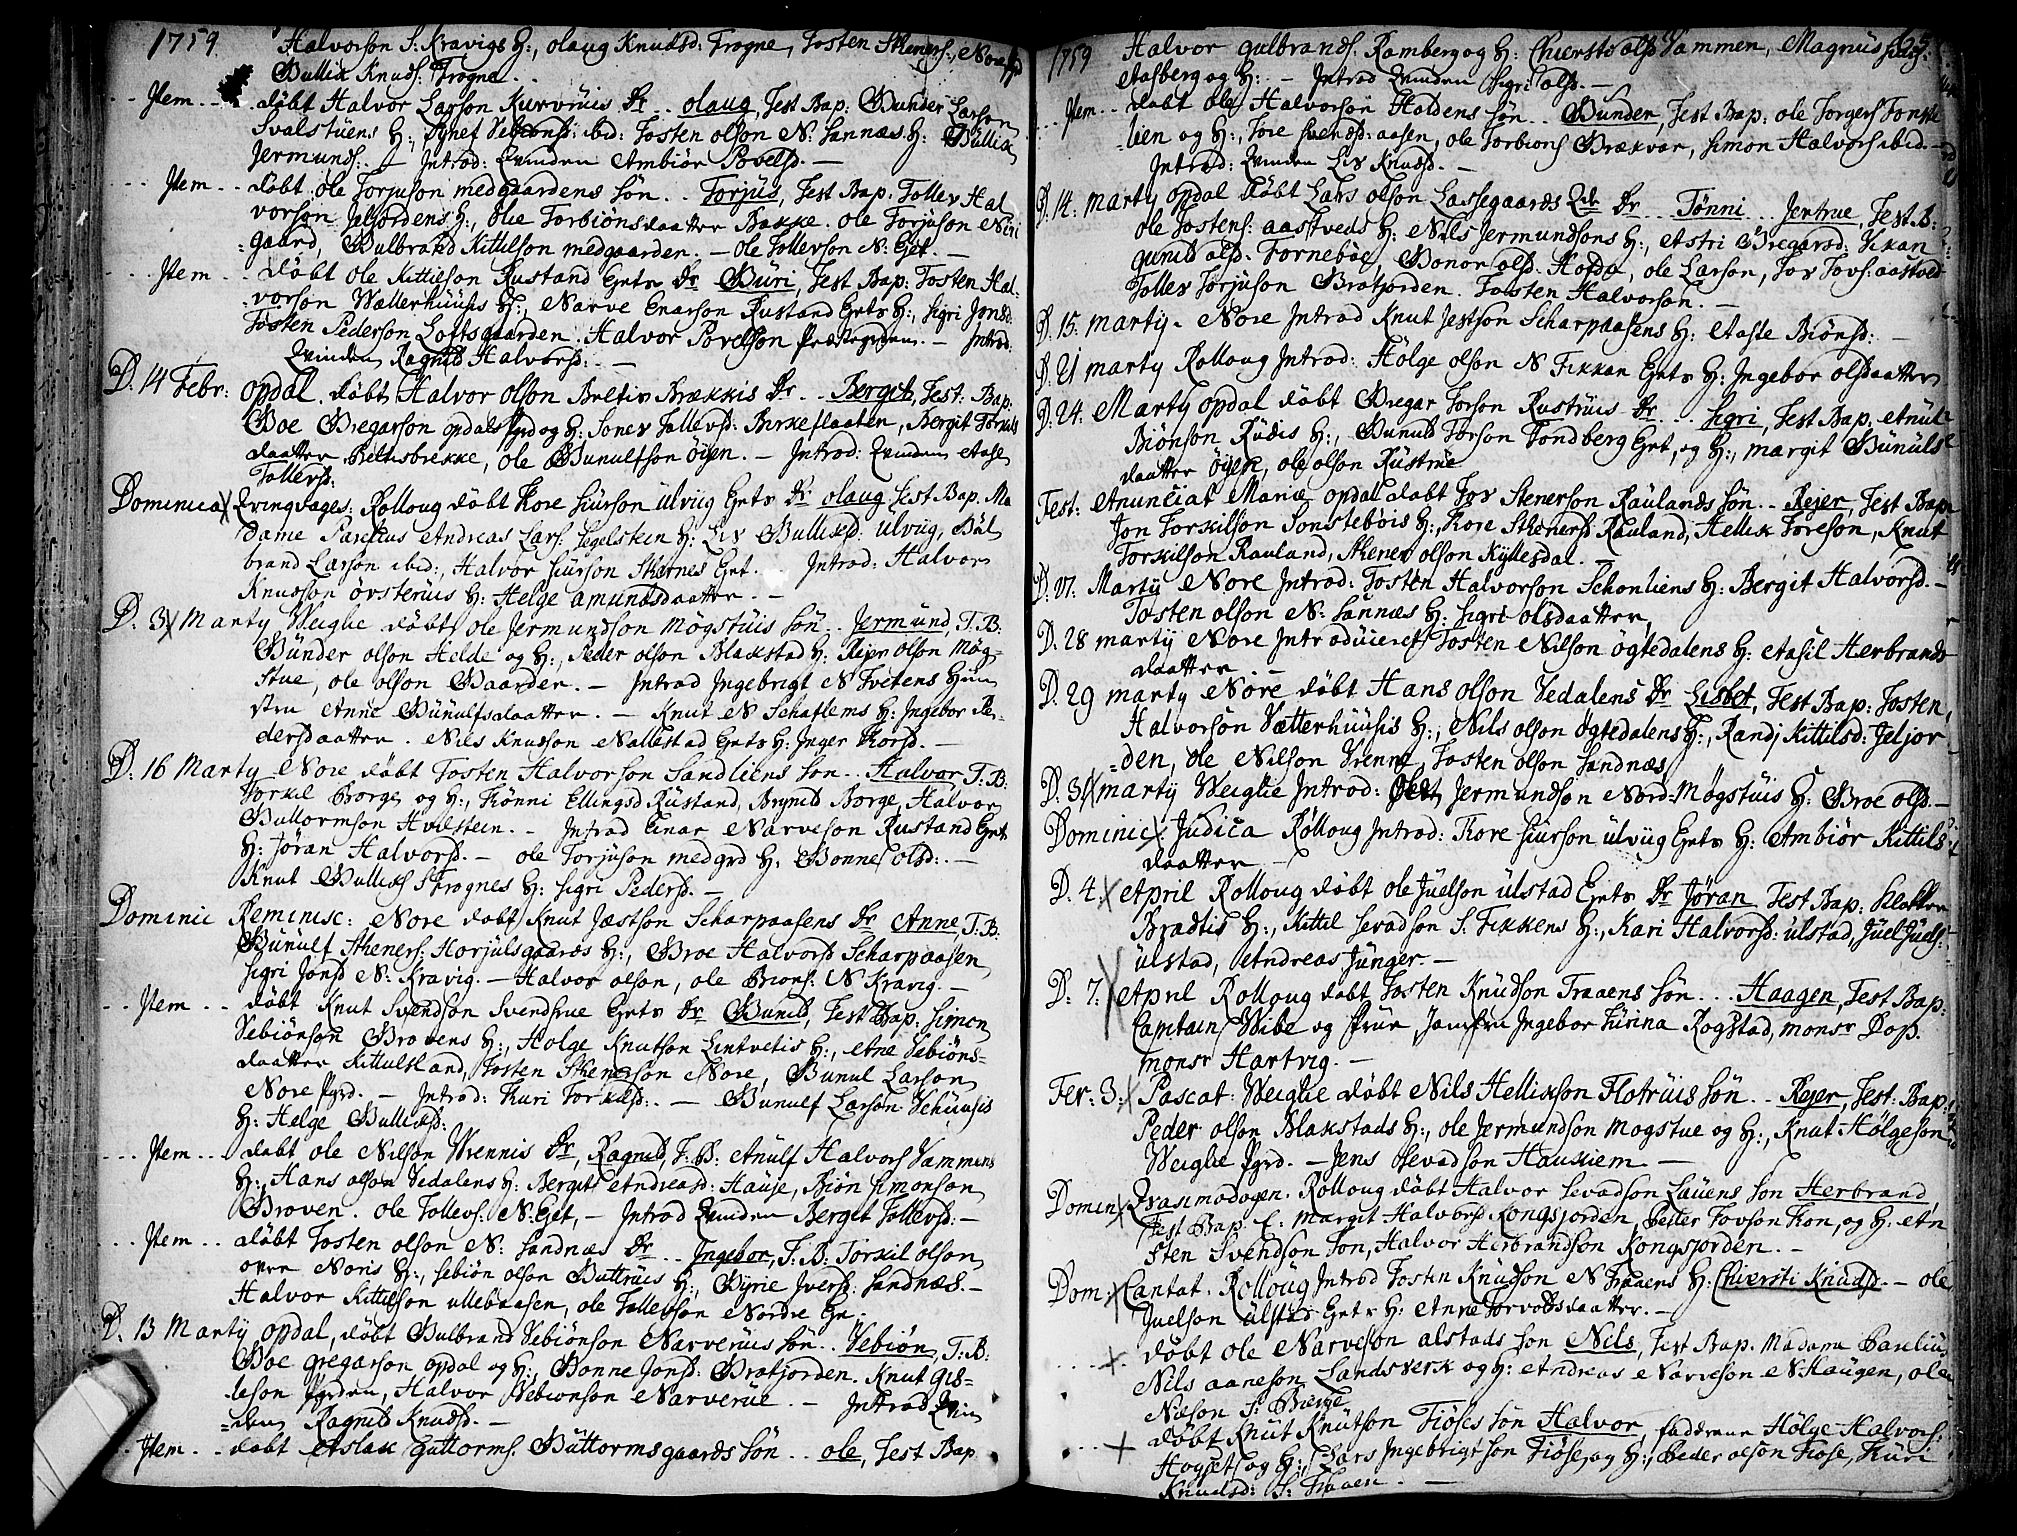 1759
Halvorson S: Kravigs H:, olaug Knudsd: Frogne, Tosten Skeners: Nore
Gullix Knuds. Frogne.
Item döbt Halvor Larson Kurvüüs Dr olaug, Test Bap: Gunder Larson
Svalstüens H:, Synet Sebiønsd: ibid: Tosten olson N: Sannæs H: Gullix
Jermunds. – Introd: Qvinden Ambiør Povelsd. –
Item döbt ole Torjuson medgaardens søn Torjus, Test Bap: Tollev Hal
vorson Jeljordens H:, olie Torbiönsdaatter Bakke. ole Torjuson Niri
gaard, Gulbrand Kittelson medgaarden. – ole Tollevson N: Eget. –
Item döbt ole Kittelson Rustand Eyets Dr Güri, Test Bap: Tosten Hal-
vorson Wætterhuuses H:, Narve Enarson Rustand Eyets H:, Sigri Jonsd:
Tosten Pederson Loftsgaarden, Halvor Povelson Præstegrden. – Introd
Qvinden Ragnild Halvorsd: –
D. 14 Febr: opdal, döbt Halvor olson Beltis Brækkis Dr Berget, Test. Bap.
Boe Gregarson opdals Pgrd og H: Soner Tollevsd: Birkeflaaten, Bergit Torkils
daatter Beltesbrekke, ole Gunulfson öyen. – Introd: Qvinden etasle
Tollevsd:
Dominica Qvingvages. Rolloug döbt Tore Siurson ülvüg Eyets Dr olaug Test Bap. Ma
dame Parelius Andreas Lars: Segelstein H: Liv Gullixsd: ulvüg, Gül
brand Larson ibid:, Halvor Siurson Skarnes Eyet. Introd: Halvor
Knudson övsterüüs H: Helge Amundsdaatter. –
D: 3 Marty Weiglie döbt ole Jermundson mogstüis søn Jermund, T. B:
Gunder olson Helde og H:, Peder olson Blakstad H: Reier olson Møg-
stue, ole olson Gaarden. – Introd Ingebrigt N Tvetens Hun
strü Anne Gunulfsdaatter. – Knut N Schaflems H: Ingebor Pe-
dersdaatter. Nils Knudson Nallestad Eyets H: Inger Torsd. –
D: 16 Marty Nore döbt Tosten Halvorson Sandliens søn Halvor, T. B:
Torkil Borge og H:, Tönni Ellingsd Rustand, Brynild Borge, Halvor
Guttormson Hvilstein. – Introd Einar Narveson Rustand Eyets
H: Jøran Halvorsd. – ole Torjuson medgrd H: Bonne olsd: –
Knut Gullixs Frognes H: Sigri Pedersd. –
Dominic Reminisc: Nore döbt Knut Jæstson Scharpaasens Dr Anne T. B.
Gunulf Skeners: Horjulsgaards H:, Broe Halvorsd Scharpaasen
Sigri Jonsd N: Kravig – Halvor olson, ole Brions: N Kravig. –
Item döbt Knut Svendson Svendsrue Eyets Dr Gunild, Test Bap: Simon
Sebiönson Brovens H:, Holge Knutson Lintvetis H:, etne Sebiöns-
daatter Kittilsland, Tosten Skenerson Nore, Gunul Larson
Nore Pgrd. – Introd: Turi Torkilsd: – Gunulf Larson Vehüusis
H: Helge Gullixsd:
Item döbt ole Nilson Vrennis Dr, Ragnild, T. B: Anulf Halvors Sammens
H:, Hans olson Vedalens H: Bergit Andreasd: Hause, Biön Simonson
Broven. ole Tollevs: N: Eget, – Introd Qvinden Berget Tollevsd: –
Item döbt Tosten olson N: Sandnæs Dr Ingebor, T. B: Torkil olson
ovre Noris H:, Sebiön olson Buttrüis H:, Gyrie Jversd: Sandnæs. –
Halvor Kittilson ullebaasen, ole Tollevson Nordre Ey.
D. 13 Marty opdal, döbt Gulbrand Sebiönson Narverüis søn Sebiön, T. B:
Boe gregarson opdal og H:, Bonne Jonsd: Bratjorden. Knut Gis-
leson Pgrden, Halvor Sebiönson Narverue. – Introd Qvin
den Ragnild Knudsd. –
Item döbt Aslak Guttorms. Guttormsgaards søn ole, Test Bap
1759 65
Halvor gulbrands. Ramberg og H: Chiersti olsd Sammen, Magnus
etasberg og H: – Introd Qvinden Sigri olsd. –
Item döbt ole Halvorson Holdens søn Gunder, Test Bap: ole Torgers Torste
lien og H:, Tore Svendsd: aasen, ole Torbions Brækvar, Simon Halvors ibid –
Introd: Qvinden Liv Knudsd. –
D. 14: marty opdal döbt Lars olson Lassegaards 2de Dr Tönni Jertrue, Test. B:
ole Tostens: aastveds H: Nils Jermundsons H:, Astri Gregarsd: Vikan
gunild olsd. Tornebøe Gonor olsd: Hofda, ole Larson, Tov Tovs: aastved
Tollev Torjuson Bratjorden. Tosten Halvorson. –
D. 15. marty. Nore Introd Knut Jestson Scharpaasens H: etaste Biönsd: –
D. 21 marty Rolloug Introd: Hölge olson N Fikkan Eyets H: Ingebor olsdaatter
D: 24. Marty opdal döbt Gregar Torson Rustrüis Dr Sigri, Test Bap: Anul
Biönson Rüdis H:, Gunuld Torson Tondberg Eyet, og H:, margit Gunuls
daatter öyen, ole olson Rüstrue
Fest: Anunciat Mariæ opdal döbt Tov Stenerson Raulands søn Rejer, Test Bap
Jon Torkilson Sonstebøis H:, Tore Skenersd Rauland, Hellik Toreson, Knut
Torkilson Rauland, Skener olson Kyllesdal. –
D. 27. Marty Nore Introd: Tosten Halvorson Schonliens H: Bergit Halvorsd. –
Tosten olson N: Sannæs H: Sigri olsdaatter,
D. 28 marty Nore Introducieret Tosten Nilson ögtedalens H: Aasil Herbrands
daatter –
D. 29 marty Nore döbt Hans olson Vedalens Dr Lisbet, Test Bap: Tosten
Halvorson Vætterhüusis H:, Nils olson ögtedalens H:, Randi Kittilsd: Jeljor
den, ole Nilson Vrenne, Tosten olson Sandnæs
D: 31 marty Weiglie Introd: Jermundson Nord: Møgstüis H: Groe olsd. –
Dominic Judica Rolloug Introd: Tore Siurson ülvüg Eyets H: Ambiör Kittils
daatter –
D. 4. April Rolloug döbt ole Juelson ülstad Eyets Dr Jöran Test Bap: Klokker
Bradtis H:, Kittil Sevadson S. Fikkens H:, Kari Halvorsd: ülstad, Juel Juels:
ülstad, Andreas Jünger. –
D: 7: April Rolloug döbt Tosten Knüdson Traaens søn Haagen, Test Bap:
Captain Wibe og frue Jomfru Ingebor Turina Rogstad, monsr Dop.
monsr Hartvig. –
Fer: 3. Pascat. Weiglie döbt Nils Hellikson Flotrüis søn Rejer, Test: Bap:
Peder olson Blakstads H:, ole Jermundson mogstue og H:, Knut Hölgeson
Weiglie Pgrd. – Jens Sevadson Haukiem –
Domin Qvasimodogen. Rolloug döbt Halvor Sevadson Lauens søn Herbrand
Test Bap E: Margit Halvorsd Kongsjorden, Peder Tovson Fon, og H: etn
sten Svendson Fon, Halvor Herbrandson Kongsjorden. –
Dom: Cantat. Rolloug Introd Tosten Knudson N Traaens H: Chiersti Knudsd. – ole
Juelson ülstad Eyets H: Anne Torvoldsdaatter. –
döbt ole Narveson alstads søn Nils, Test Bap. Madame Pareliüs
Nils aaneson Landsverk og H: Andreas Narveson N Haugen, ole
Nilson S: Bierge
döbt Knut Knutson Fiöses søn Halvor, fadderne Hölge Halvors:
Hogset og H:, Lars Ingebrigtson Fiöse og H:, Peder olson Fiose, Turi
Knudsd: S: Traaen. –